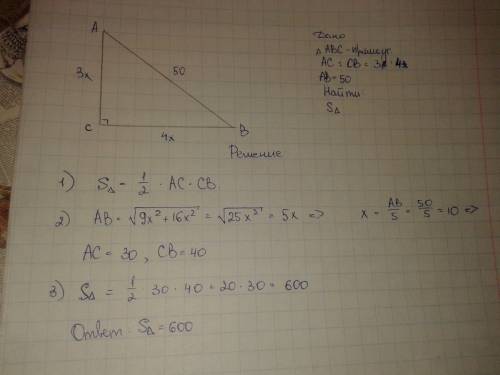 A
3x
50
C
4x
B
Дано
△ ABC - прямоуг.
AC : CB = 3x : 4x
AB = 50
Найти
S△
Решение
1) S△ = 1/2 · AC · CB
2) AB = √9x² + 16x² = √25x² = 5x => x = AB/5 = 50/5 = 10 =>
AC = 30, CB = 40
3) S△ = 1/2 · 30 · 40 = 20 · 30 = 600
Ответ: S△ = 600